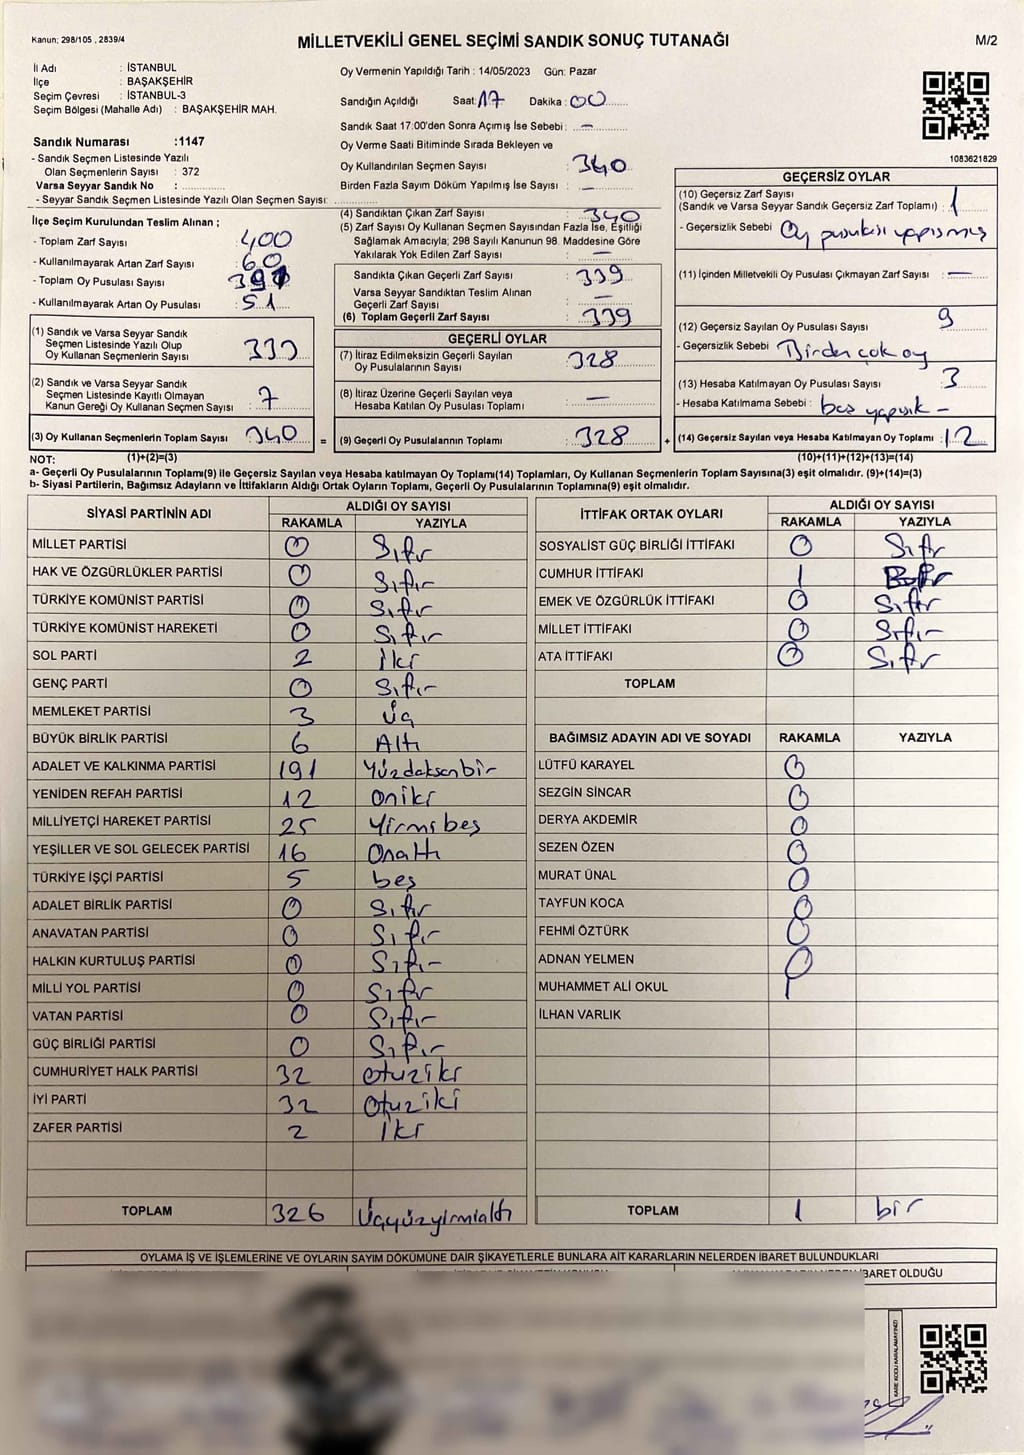 Kanun; 298/105 , 2839/4
MİLLETVEKİLİ GENEL SEÇİMİ SANDIK SONUÇ TUTANAĞI
M/2
İl Adı : İSTANBUL
İlçe : BAŞAKŞEHİR
Seçim Çevresi : İSTANBUL-3
Seçim Bölgesi (Mahalle Adı) : BAŞAKŞEHİR MAH.
Sandık Numarası :1147
- Sandık Seçmen Listesinde Yazılı
Olan Seçmenlerin Sayısı : 372
Varsa Seyyar Sandık No :
- Seyyar Sandık Seçmen Listesinde Yazılı Olan Seçmen Sayısı:
Oy Vermenin Yapıldığı Tarih : 14/05/2023 Gün: Pazar
Sandığın Açıldığı Saat: 17 Dakika : 00
Sandık Saat 17:00'den Sonra Açımış İse Sebebi : —
Oy Verme Saati Bitiminde Sırada Bekleyen ve
Oy Kullandırılan Seçmen Sayısı : 340
Birden Fazla Sayım Döküm Yapılmış İse Sayısı : —
1083621829
İlçe Seçim Kurulundan Teslim Alınan ;
- Toplam Zarf Sayısı : 400
- Kullanılmayarak Artan Zarf Sayısı : 60
- Toplam Oy Pusulası Sayısı :
- Kullanılmayarak Artan Oy Pusulası : 51
(1) Sandık ve Varsa Seyyar Sandık
Seçmen Listesinde Yazılı Olup
Oy Kullanan Seçmenlerin Sayısı : 333
(2) Sandık ve Varsa Seyyar Sandık
Seçmen Listesinde Kayıtlı Olmayan
Kanun Gereği Oy Kullanan Seçmen Sayısı : 7
(3) Oy Kullanan Seçmenlerin Toplam Sayısı : 340
(4) Sandıktan Çıkan Zarf Sayısı : 340
(5) Zarf Sayısı Oy Kullanan Seçmen Sayısından Fazla İse, Eşitliği
Sağlamak Amacıyla; 298 Sayılı Kanunun 98. Maddesine Göre
Yakılarak Yok Edilen Zarf Sayısı : —
Sandıkta Çıkan Geçerli Zarf Sayısı : 339
Varsa Seyyar Sandıktan Teslim Alınan
Geçerli Zarf Sayısı : —
(6) Toplam Geçerli Zarf Sayısı : 339
GEÇERLİ OYLAR
(7) İtiraz Edilmeksizin Geçerli Sayılan
Oy Pusulalarının Sayısı : 328
(8) İtiraz Üzerine Geçerli Sayılan veya
Hesaba Katılan Oy Pusulası Toplamı : —
= (9) Geçerli Oy Pusulalarının Toplamı : 328
GEÇERSİZ OYLAR
(10) Geçersiz Zarf Sayısı
(Sandık ve Varsa Seyyar Sandık Geçersiz Zarf Toplamı) : 1
- Geçersizlik Sebebi : Oy pusulası yapışmış
(11) İçinden Milletvekili Oy Pusulası Çıkmayan Zarf Sayısı : —
(12) Geçersiz Sayılan Oy Pusulası Sayısı : 9
- Geçersizlik Sebebi : Birden çok oy
(13) Hesaba Katılmayan Oy Pusulası Sayısı : 3
- Hesaba Katılmama Sebebi : boş yapışık —
+ (14) Geçersiz Sayılan veya Hesaba Katılmayan Oy Toplamı : 12
NOT: (1)+(2)=(3) (10)+(11)+(12)+(13)=(14)
a- Geçerli Oy Pusulalarının Toplam(9) ile Geçersiz Sayılan veya Hesaba katılmayan Oy Toplamı(14) Toplamları, Oy Kullanan Seçmenlerin Toplam Sayısına(3) eşit olmalıdır. (9)+(14)=(3)
b- Siyasi Partilerin, Bağımsız Adayların ve İttifakların Aldığı Ortak Oyların Toplamı, Geçerli Oy Pusulalarının Toplamına(9) eşit olmalıdır.
SİYASİ PARTİNİN ADI ALDIĞI OY SAYISI
RAKAMLA YAZIYLA
MİLLET PARTİSİ 0 Sıfır
HAK VE ÖZGÜRLÜKLER PARTİSİ 0 Sıfır
TÜRKİYE KOMÜNİST PARTİSİ 0 Sıfır
TÜRKİYE KOMÜNİST HAREKETİ 0 Sıfır
SOL PARTİ 2 iki
GENÇ PARTİ 0 Sıfır
MEMLEKET PARTİSİ 3 üç
BÜYÜK BİRLİK PARTİSİ 6 Altı
ADALET VE KALKINMA PARTİSİ 191 Yüzdoksanbir
YENİDEN REFAH PARTİSİ 12 oniki
MİLLİYETÇİ HAREKET PARTİSİ 25 Yirmibeş
YEŞİLLER VE SOL GELECEK PARTİSİ 16 Onaltı
TÜRKİYE İŞÇİ PARTİSİ 5 beş
ADALET BİRLİK PARTİSİ 0 Sıfır
ANAVATAN PARTİSİ 0 Sıfır
HALKIN KURTULUŞ PARTİSİ 0 Sıfır
MİLLİ YOL PARTİSİ 0 Sıfır
VATAN PARTİSİ 0 Sıfır
GÜÇ BİRLİĞİ PARTİSİ 0 Sıfır
CUMHURİYET HALK PARTİSİ 32 otuziki
İYİ PARTİ 32 otuziki
ZAFER PARTİSİ 2 iki
TOPLAM 326 Üçyüzyirmialtı
İTTİFAK ORTAK OYLARI ALDIĞI OY SAYISI
RAKAMLA YAZIYLA
SOSYALİST GÜÇ BİRLİĞİ İTTİFAKI 0 Sıfır
CUMHUR İTTİFAKI 1 Bir
EMEK VE ÖZGÜRLÜK İTTİFAKI 0 Sıfır
MİLLET İTTİFAKI 0 Sıfır
ATA İTTİFAKI 0 Sıfır
TOPLAM
BAĞIMSIZ ADAYIN ADI VE SOYADI RAKAMLA YAZIYLA
LÜTFÜ KARAYEL 0
SEZGİN SİNCAR 0
DERYA AKDEMİR 0
SEZEN ÖZEN 0
MURAT ÜNAL 0
TAYFUN KOCA 0
FEHMİ ÖZTÜRK 0
ADNAN YELMEN 0
MUHAMMET ALİ OKUL 1
İLHAN VARLIK
TOPLAM 1 bir
OYLAMA İŞ VE İŞLEMLERİNE VE OYLARIN SAYIM DÖKÜMÜNE DAİR ŞİKAYETLERLE BUNLARA AİT KARARLARIN NELERDEN İBARET BULUNDUKLARI
İBARET OLDUĞU
KARE KODU KARALAMAYINIZ!